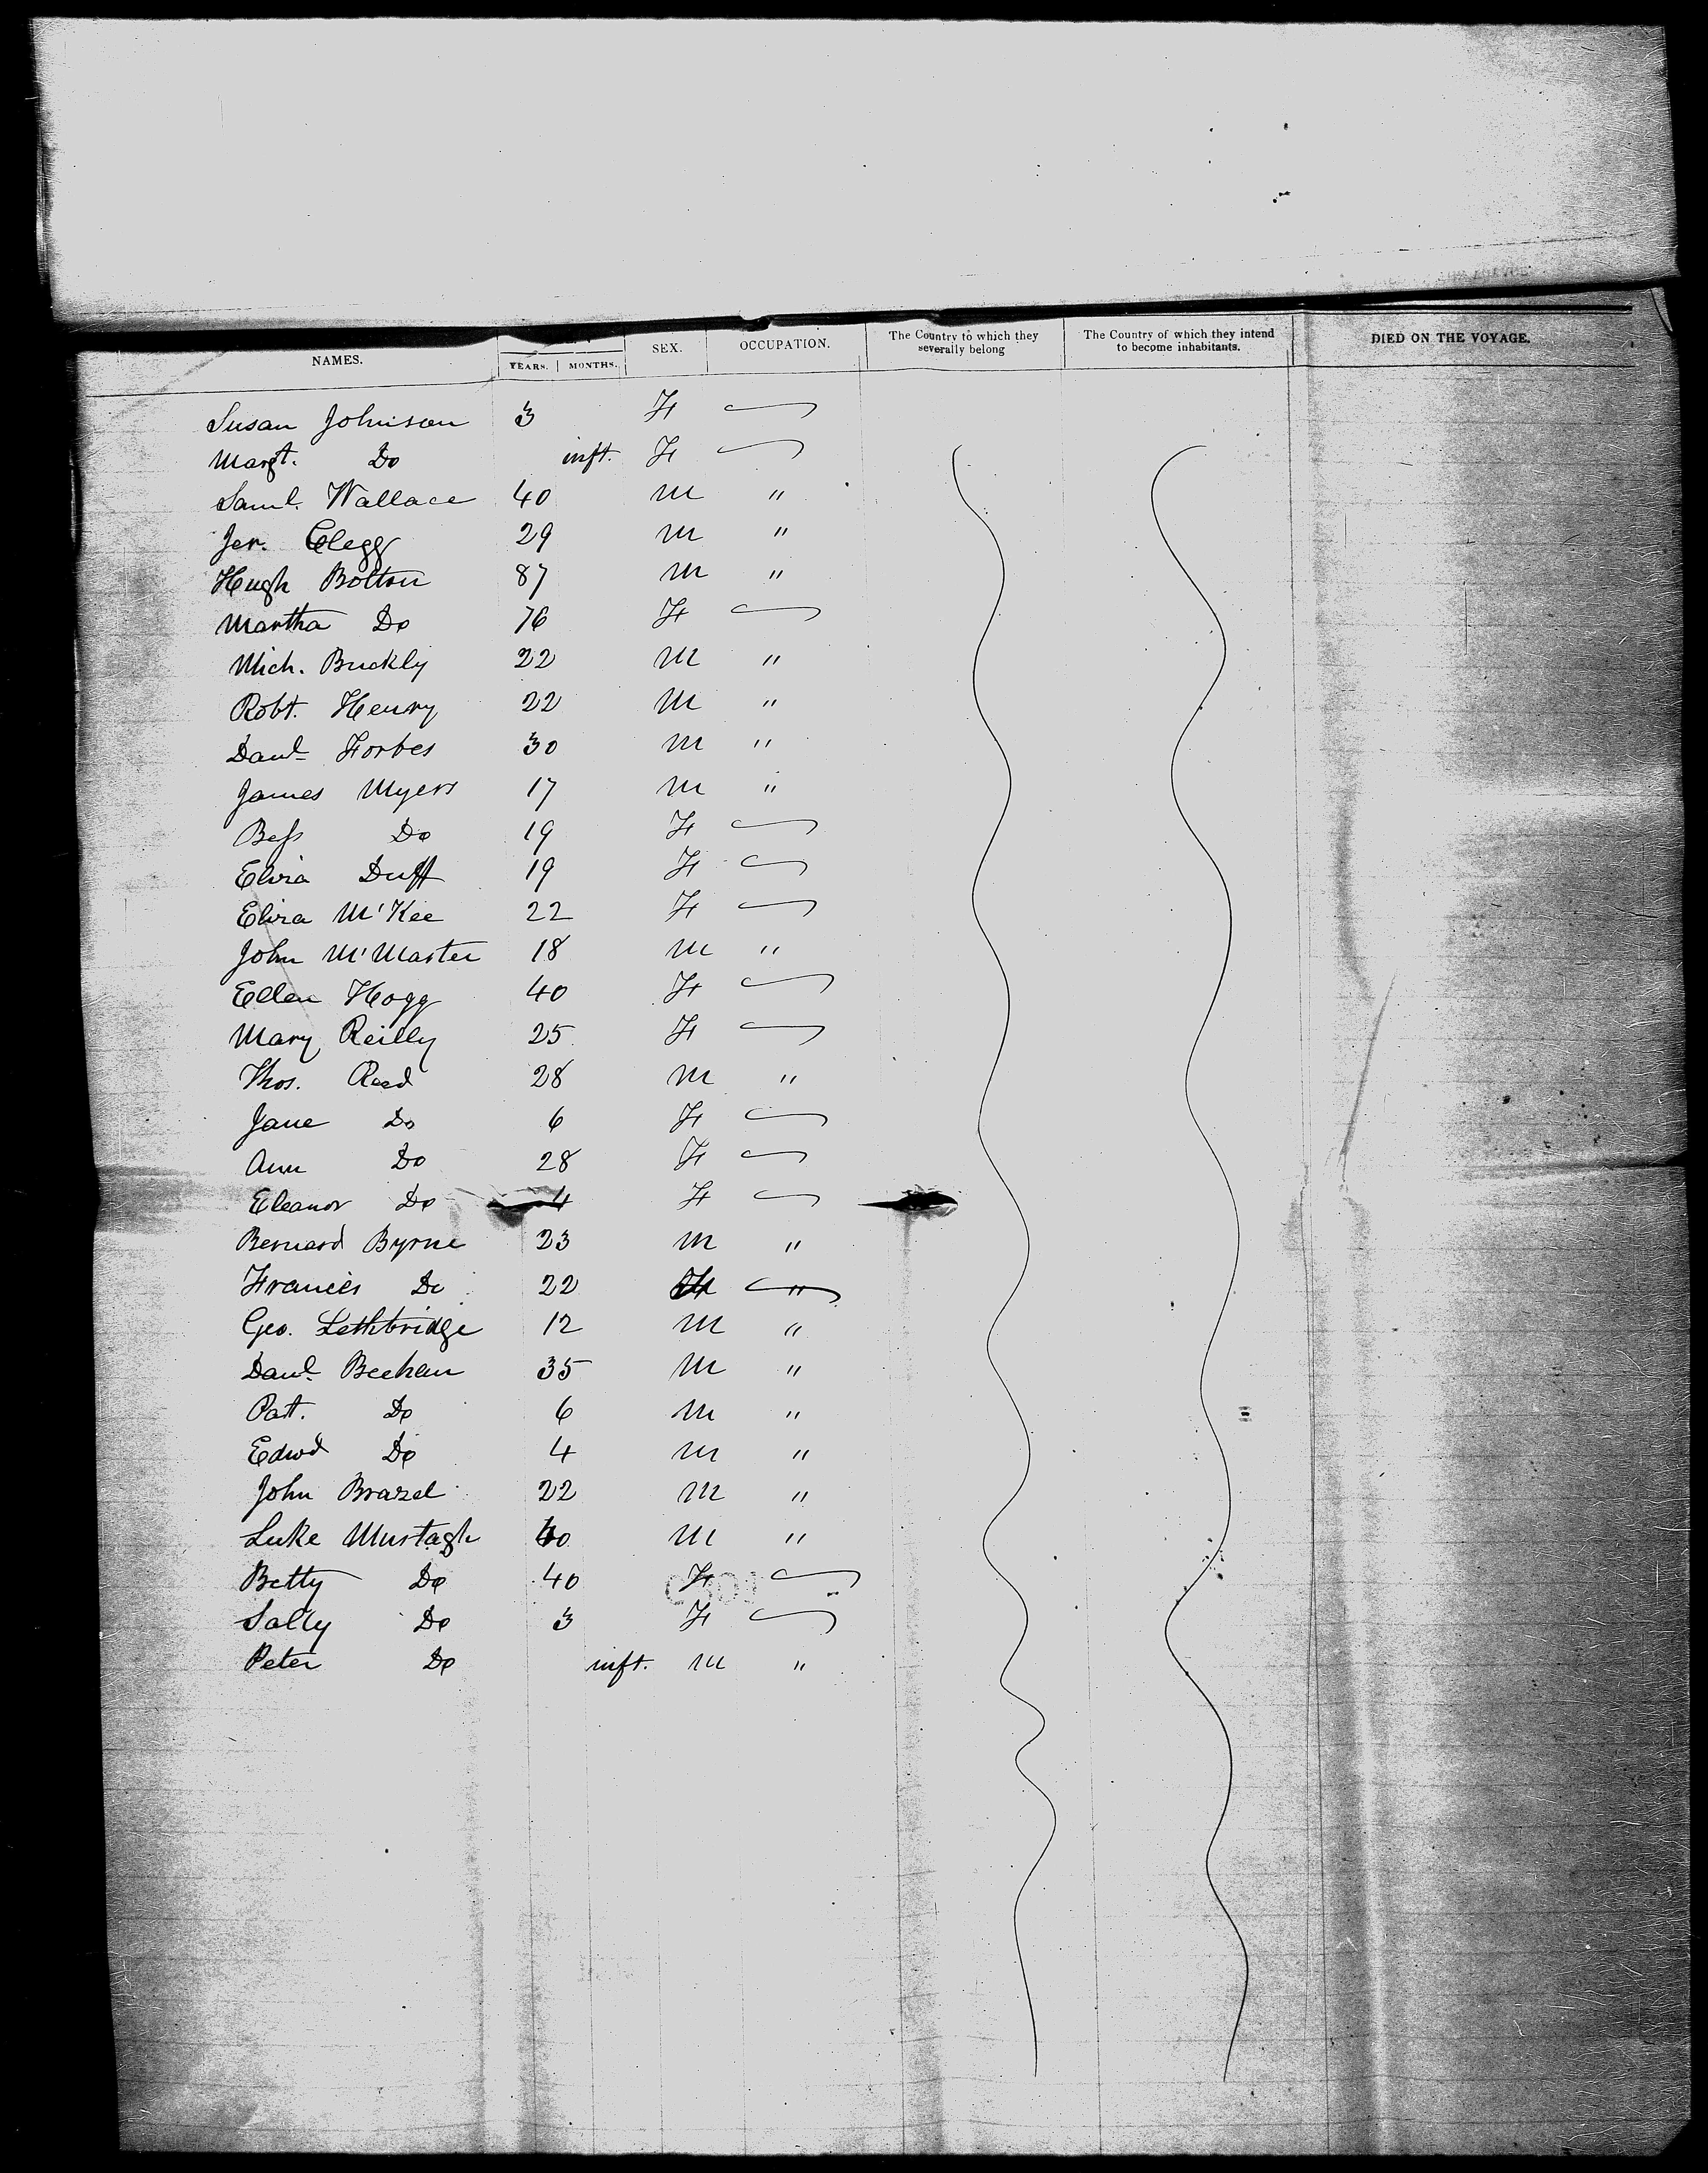 NAMES. YEARS. MONTHS. SEX. OCCUPATION. The Country to which they severally belong The Country of which they intend to become inhabitants. DIED ON THE VOYAGE.
Susan Johnison 3 F
Margt. Do inft. F
Saml. Wallace 40 M "
Jer. Clegg 29 M "
Hugh Bolton 87 M "
Martha Do 76 F
Mich. Buckly 22 M "
Robt. Henry 22 M "
Danl. Forbes 30 M "
James Myers 17 M "
Bess Do 19 F
Eliza Duff 19 F
Eliza M'Kee 22 F
John M'Master 18 M "
Ellen Hogg 40 F
Mary Reilly 25 F
Thos. Reed 28 M "
Jane Do 6 F
Ann Do 28 F
Eleanor Do 4 F
Bernard Byrne 23 M "
Francis Do 22 "
Geo. Lethbridge 12 M "
Danl. Beehan 35 M "
Patt. Do 6 M "
Edwd Do 4 M "
John Brazel 22 M "
Luke Murtagh 40 M "
Betty Do 40 F
Sally Do 3 F
Peter Do inft. M "